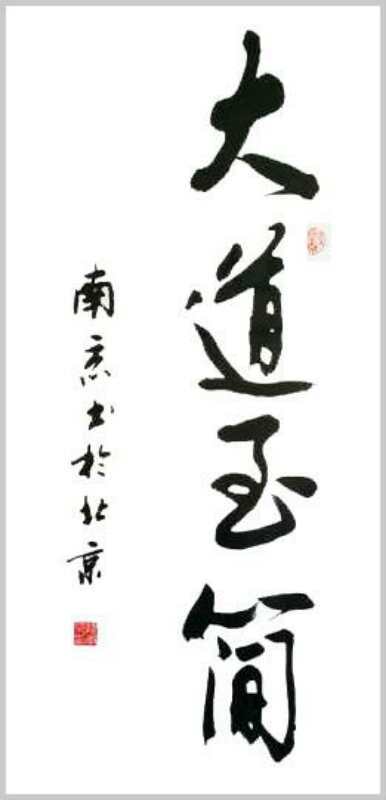 大道至简
南京书於北京